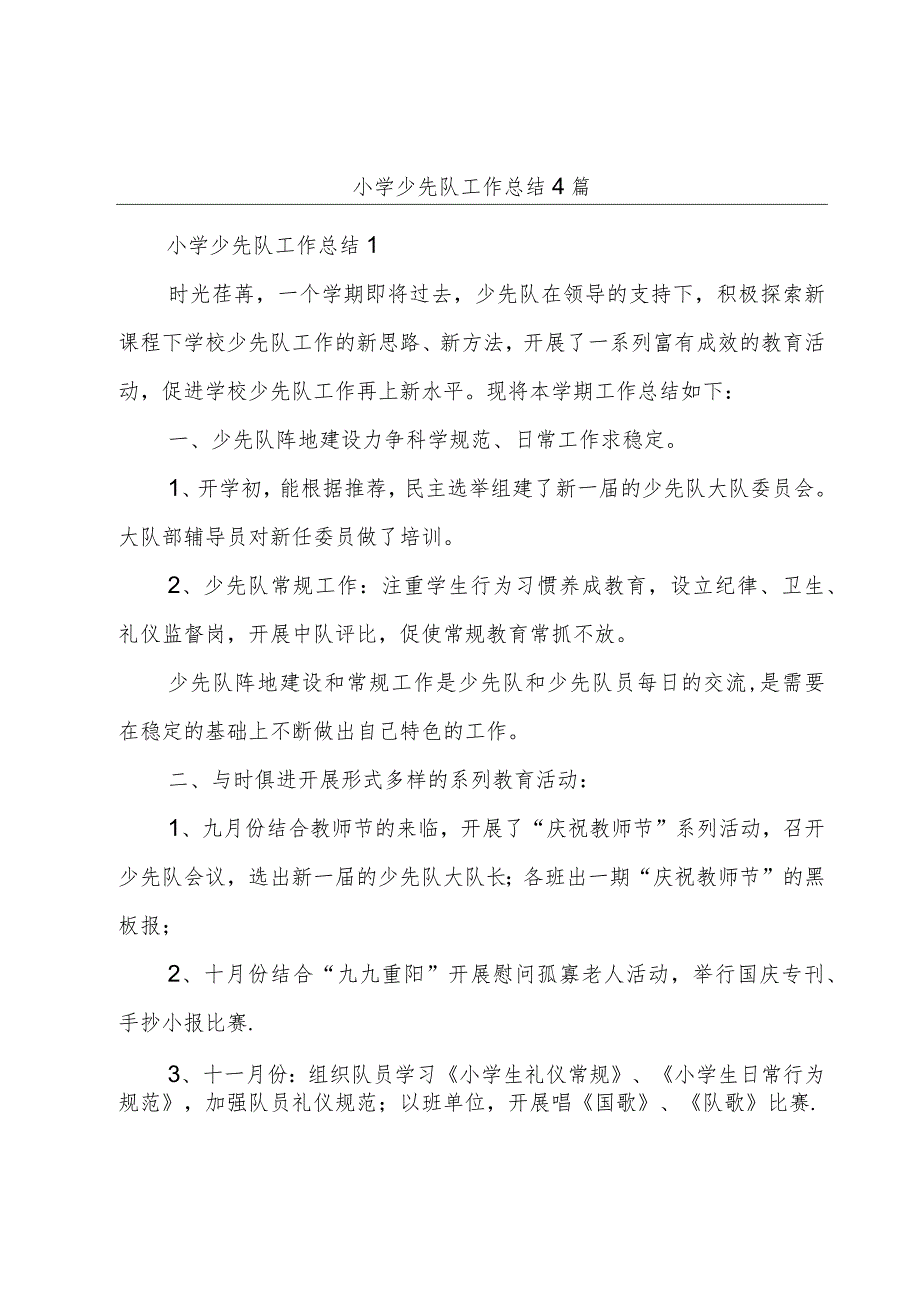 小学少先队工作总结4篇
小学少先队工作总结1
时光荏苒，一个学期即将过去，少先队在领导的支持下，积极探索新
课程下学校少先队工作的新思路、新方法，开展了一系列富有成效的教育活
动，促进学校少先队工作再上新水平。现将本学期工作总结如下：
一、少先队阵地建设力争科学规范、日常工作求稳定。
1、开学初，能根据推荐，民主选举组建了新一届的少先队大队委员会。
大队部辅导员对新任委员做了培训。
2、少先队常规工作：注重学生行为习惯养成教育，设立纪律、卫生、
礼仪监督岗，开展中队评比，促使常规教育常抓不放。
少先队阵地建设和常规工作是少先队和少先队员每日的交流,是需要
在稳定的基础上不断做出自己特色的工作。
二、与时俱进开展形式多样的系列教育活动：
1、九月份结合教师节的来临，开展了“庆祝教师节”系列活动，召开
少先队会议，选出新一届的少先队大队长；各班出一期“庆祝教师节”的黑
板报；
2、十月份结合“九九重阳”开展慰问孤寡老人活动，举行国庆专刊、
手抄小报比赛.
3、十一月份：组织队员学习《小学生礼仪常规》、《小学生日常行为
规范》，加强队员礼仪规范；以班单位，开展唱《国歌》、《队歌》比赛.